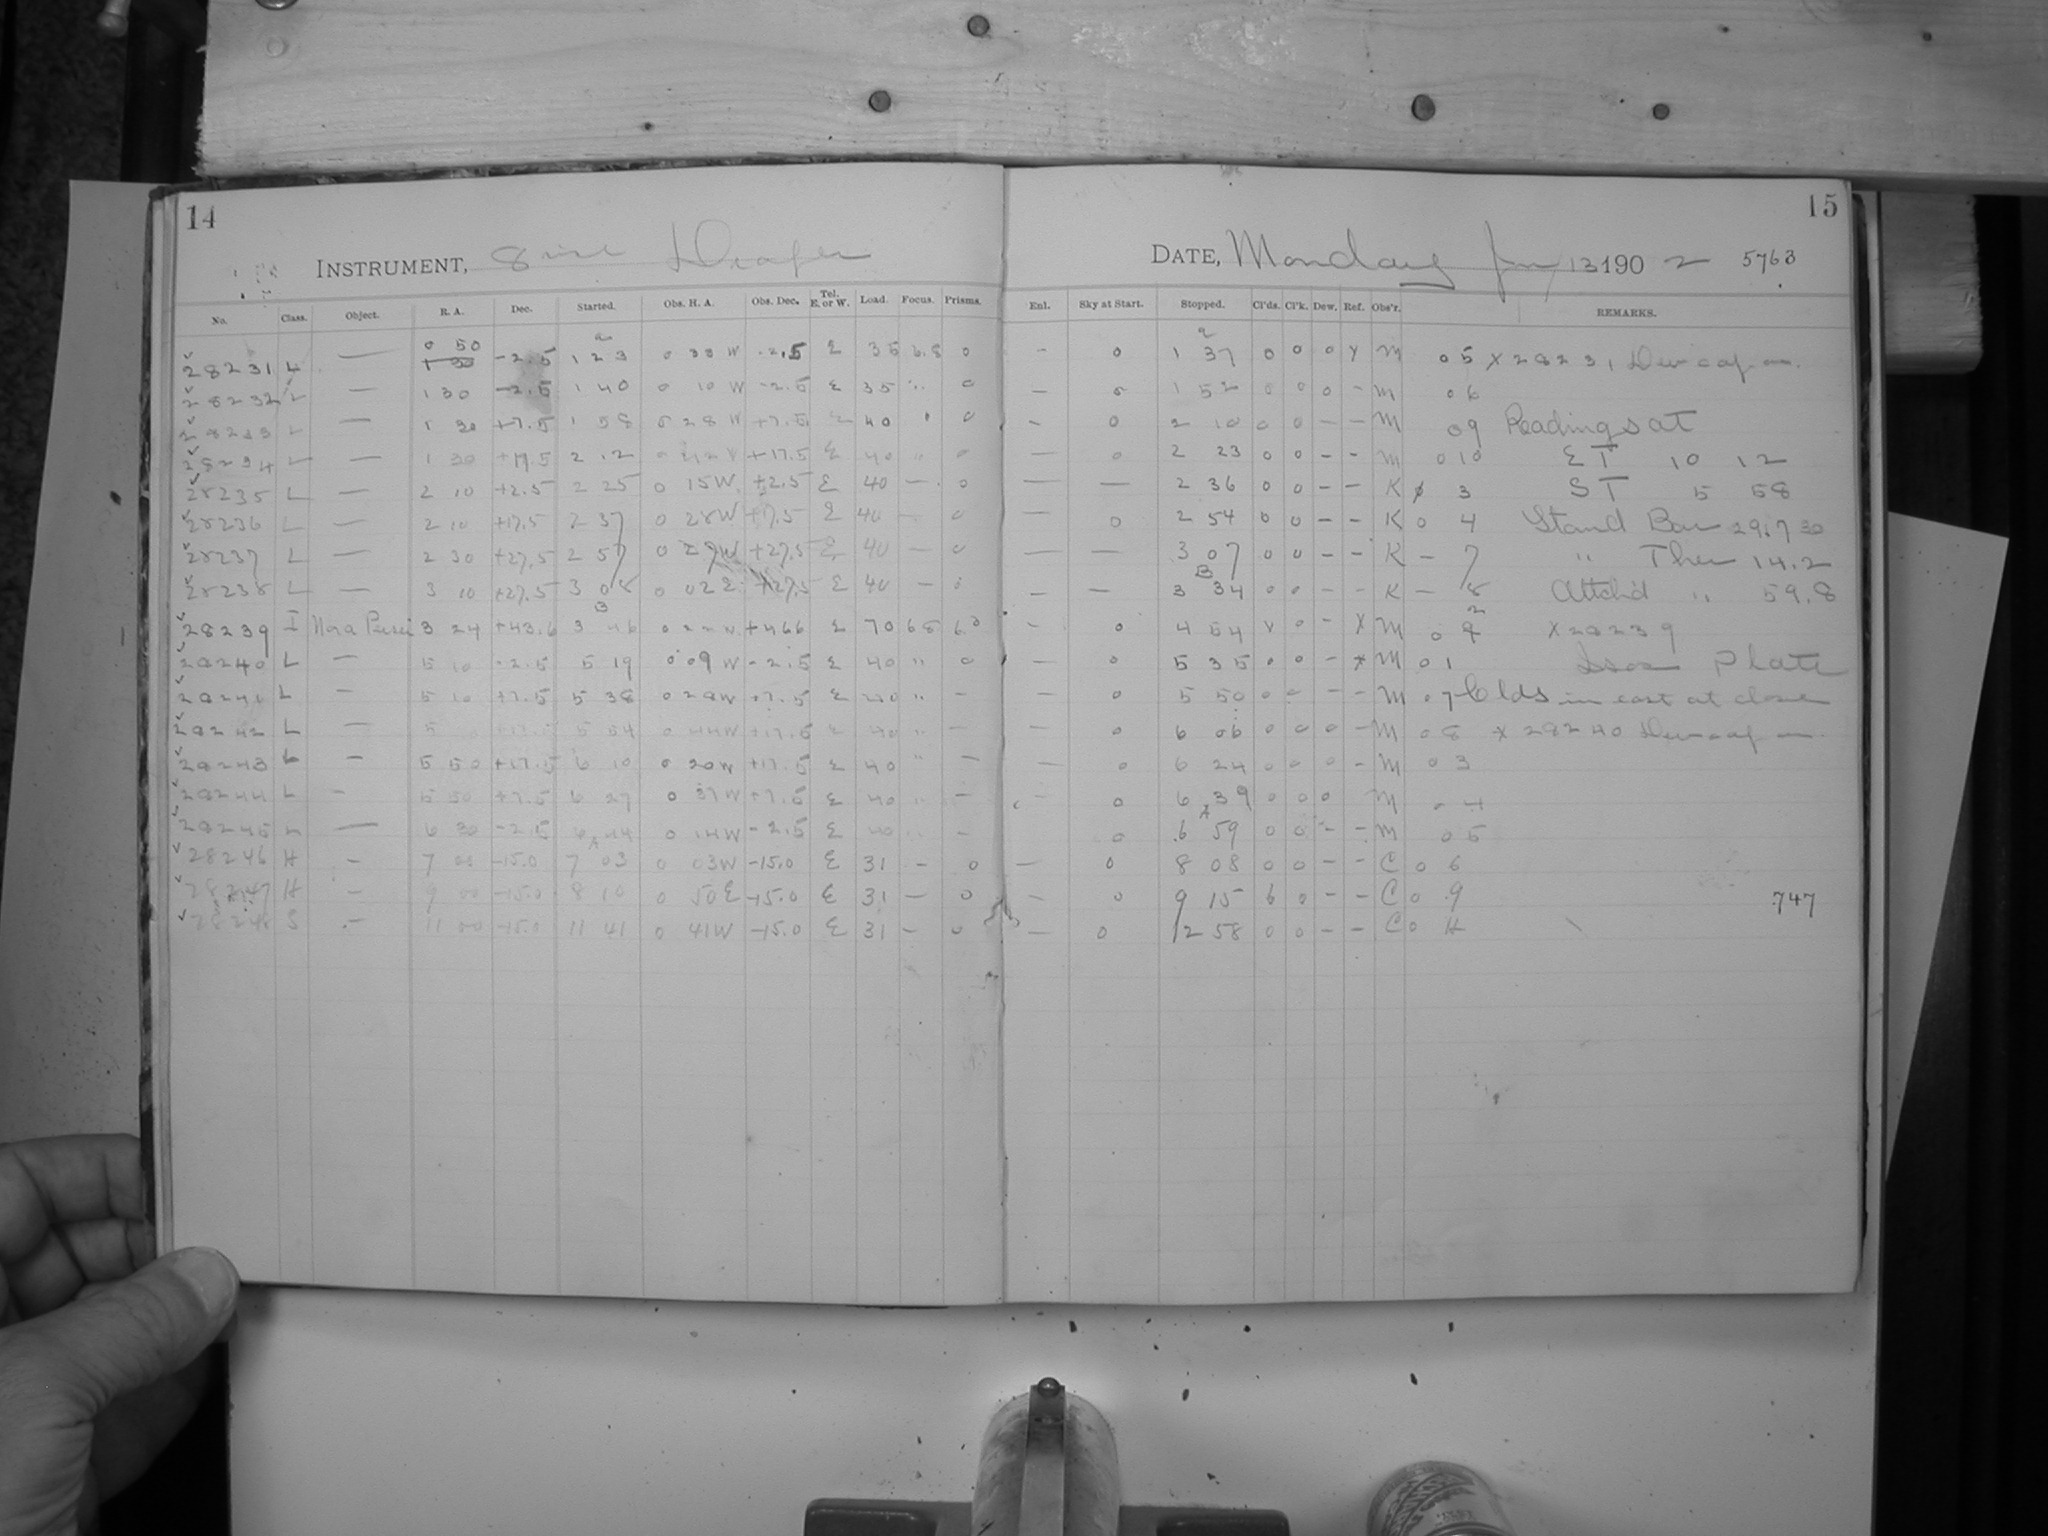 14
INSTRUMENT, 8 inch Draper
No. Class. Object. R. A. Dec. Started. Obs. H. A. Obs. Dec. Tel. E. or W. Load. Focus. Prisms.
0 50
28231 L — 1 30 -2.5 1 23 0 33 W -2.5 E 35 6.8 0
28232 L — 1 30 -2.5 1 40 0 10 W -2.5 E 35 " 0
28233 L — 1 30 +7.5 1 58 0 28 W +7.5 E 40 " 0
28234 L — 1 30 +17.5 2 12 0 42 W +17.5 E 40 " 0
28235 L — 2 10 +2.5 2 25 0 15W +2.5 E 40 — 0
28236 L — 2 10 +17.5 2 37 0 28W +17.5 E 40 — 0
28237 L — 2 30 +27.5 2 57 0 27W +27.5 E 40 — 0
28238 L — 3 10 +27.5 3 08 0 02 E +27.5 E 40 —
28239 I Nova Persei 3 24 +43.6 3 46 0 22 W +46.6 E 70 68
28240 L — 5 10 -2.5 5 19 0 09 W -2.5 E 40 " 0
28241 L — 5 10 +7.5 5 38 0 28W +7.5 E 40 " —
28242 L — 5 5 54 0 44W +17.5 E 40 " —
28243 L — 5 50 +17.5 6 10 0 20W +17.5 E 40 " —
28244 L — 5 50 +7.5 6 27 0 37W +7.5 E 40 " —
28245 L — 6 30 -2.5 6 44 0 14W -2.5 E 40 " —
28246 H — 7 00 -15.0 7 03 0 03W -15.0 E 31 — 0
28247 H — 9 00 -15.0 8 10 0 50E -15.0 E 31 — 0
28248 S — 11 00 -15.0 11 41 0 41W -15.0 E 31 — 0
15
DATE, Monday Jan 13 1902 5763
Enl. Sky at Start. Stopped. Cl'ds. Cl'k. Dew. Ref. Obs'r. REMARKS.
— 0 1 37 0 0 0 x M 05 x 28231 Dew cap on.
— 0 1 52 0 0 0 — M 06
— 0 2 10 0 0 — — M 09 Readings at
— 0 2 23 0 0 — — M 010 ET 10 12
— — 2 36 0 0 — — K 3 ST 5 58
— 0 2 54 0 0 — — K 0 4 Stand Bar 29.730
— — 3 07 0 0 — — K — 7 " Ther 14.2
— — 3 34 0 0 — — K — 8 Attch'd " 59.8
— 0 4 54 v 0 — x M 0 2 x 28239
— 0 5 35 0 0 — x M 0 1 Plate
— 0 5 50 0 0 — — M 07 Clds in east at close
— 0 6 06 0 0 0 — M 08 x 28240 Dew cap on.
— 0 6 24 0 0 0 — M 0 3
0 6 39 0 0 0 M 0 4
0 6 59 0 0 — — M 0 5
— 0 8 08 0 0 — — C 0 6
— 0 9 15 6 0 — — C 0 9 747
— 0 12 58 0 0 — — C 0 H